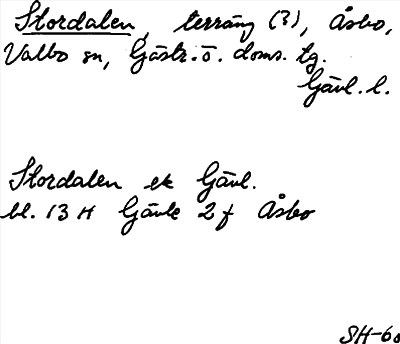 Stordalen, terräng (3), Åsbo,
Valbo sn, Gästr. ö. doms. tg.
Gävl. l.
Stordalen ek Gävl.
bl. 13 H Gävle 2 f Åsbo
SH-60